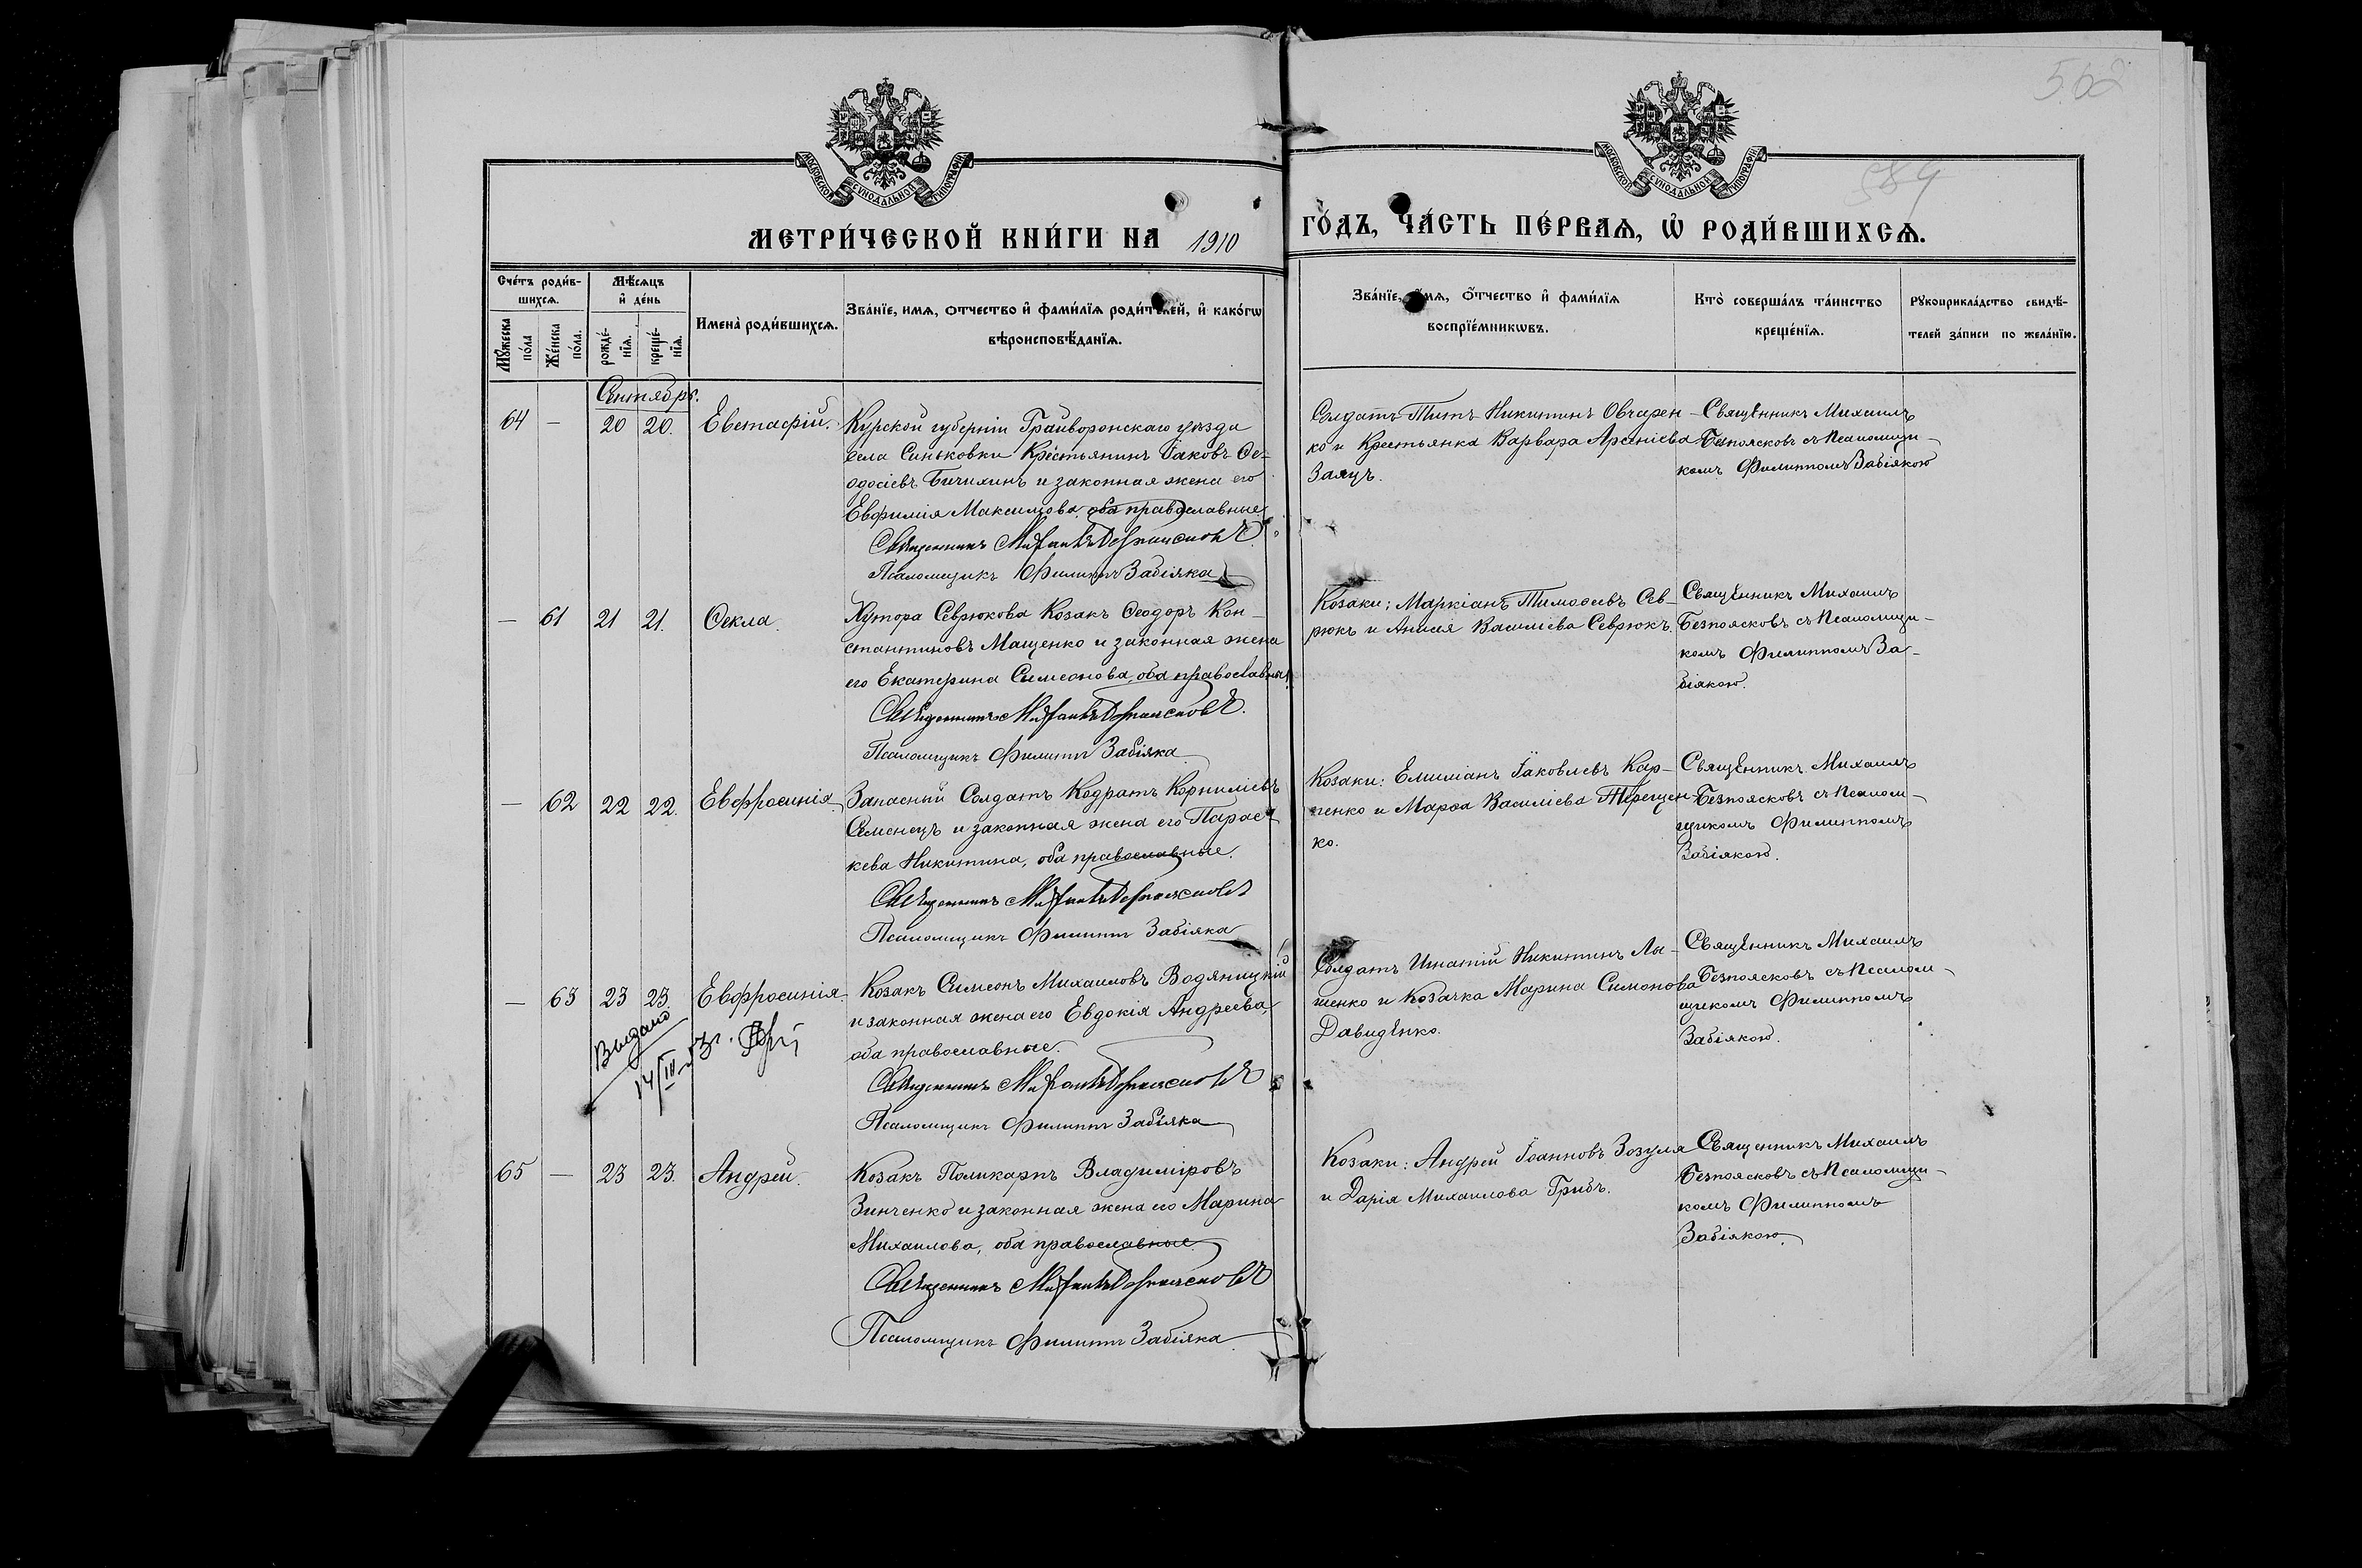 562
589
МОСКОВСКОЙ СѴНОДАЛЬНОЙ ТИПОГРАФІИ
МОСКОВСКОЙ СѴНОДАЛЬНОЙ ТИПОГРАФІИ
МЕТРИ́ЧЕСКОЙ КНИ́ГИ НА 1910 ГО́ДЪ, ЧА́СТЬ ПЕ́РВАѦ, Ѡ҆ РОДИ́ВШИХСѦ.
Сче́тъ роди́в-
шихсѧ.
Мѣ́сѧцъ
и҆ де́нь
Мꙋ́жеска
по́ла
Же́нска
по́ла.
рожде́-
нїѧ.
креще́-
нїѧ.
Имена̀ роди́вшихсѧ.
Зва́нїе, имѧ, отчество и҆ фами́лїѧ роди́телей, и҆ како́гѡ
вѣроисповѣ́данїѧ.
Зва́нїе, имѧ, ѻ҆́тчество и҆ фами́лїѧ
воспрїе́мникѡвъ.
Кто̀ соверша́лъ та́инство
креще́нїѧ.
Рꙋкоприкла́дство свидѣ́-
телей за́писи по жела́нїю.
Сентябрь.
64 — 20 20. Евстафій.
Курской губерніи Грайворонскаго уѣзда
села Синьковки Крестьянинъ Іаковъ Ѳе-
одосіевъ Бичихинъ и законная жена его
Евфимія Максимова, оба православные.
Священникъ Михаилъ Безпоясковъ
Псаломщикъ Филиппъ Забіяка
Солдатъ Титъ Никитинъ Овчарен-
ко и Крестьянка Варвара Арсеніева
Заяцъ.
Священникъ Михаилъ
Безпоясковъ съ Псаломщи-
комъ Филиппомъ Забіякою
— 61 21 21. Ѳекла.
Хутора Севрюкова Козакъ Ѳеодоръ Кон-
стантиновъ Мащенко и законная жена
его Екатерина Симеонова, оба православные.
Священникъ Михаилъ Безпоясковъ.
Псаломщикъ Филиппъ Забіяка
Козаки: Маркіанъ Тимоѳеевъ Сев-
рюкъ и Анисія Василіева Севрюкъ.
Священникъ Михаилъ
Безпоясковъ съ Псаломщи-
комъ Филиппомъ За-
біякою.
— 62 22 22. Евфросинія
Запасный Солдатъ Кодратъ Корниліевъ
Семенецъ и законная жена его Парас-
кева Никитина, оба православные.
Священникъ Михаилъ Безпоясковъ
Псаломщикъ Филиппъ Забіяка
Козаки: Емиліанъ Іаковлевъ Кар-
пенко и Марѳа Василіева Терещен-
ко.
Священникъ Михаилъ
Безпоясковъ съ Псалом-
щикомъ Филиппомъ
Забіякою.
— 63 23 23. Евфросинія.
Козакъ Симеонъ Михаиловъ Водяницкій
и законная жена его Евдокія Андреева,
оба православные.
Священникъ Михаилъ Безпоясковъ
Псаломщикъ Филиппъ Забіяка
Солдатъ Игнатій Никитинъ Ля-
шенко и Козачка Марина Симонова
Давиденко.
Священникъ Михаилъ
Безпоясковъ съ Псалом-
щикомъ Филиппомъ
Забіякою.
Выдано
14/III-53г.
65 — 23 23. Андрей.
Козакъ Поликарпъ Владиміровъ
Зинченко и законная жена его Марина
Михаилова, оба православные.
Священникъ Михаилъ Безпоясковъ
Псаломщикъ Филиппъ Забіяка.
Козаки: Андрей Іоанновъ Зозуля
и Дарія Михаилова Грибъ.
Священникъ Михаилъ
Безпоясковъ съ Псаломщи-
комъ Филиппомъ
Забіякою.